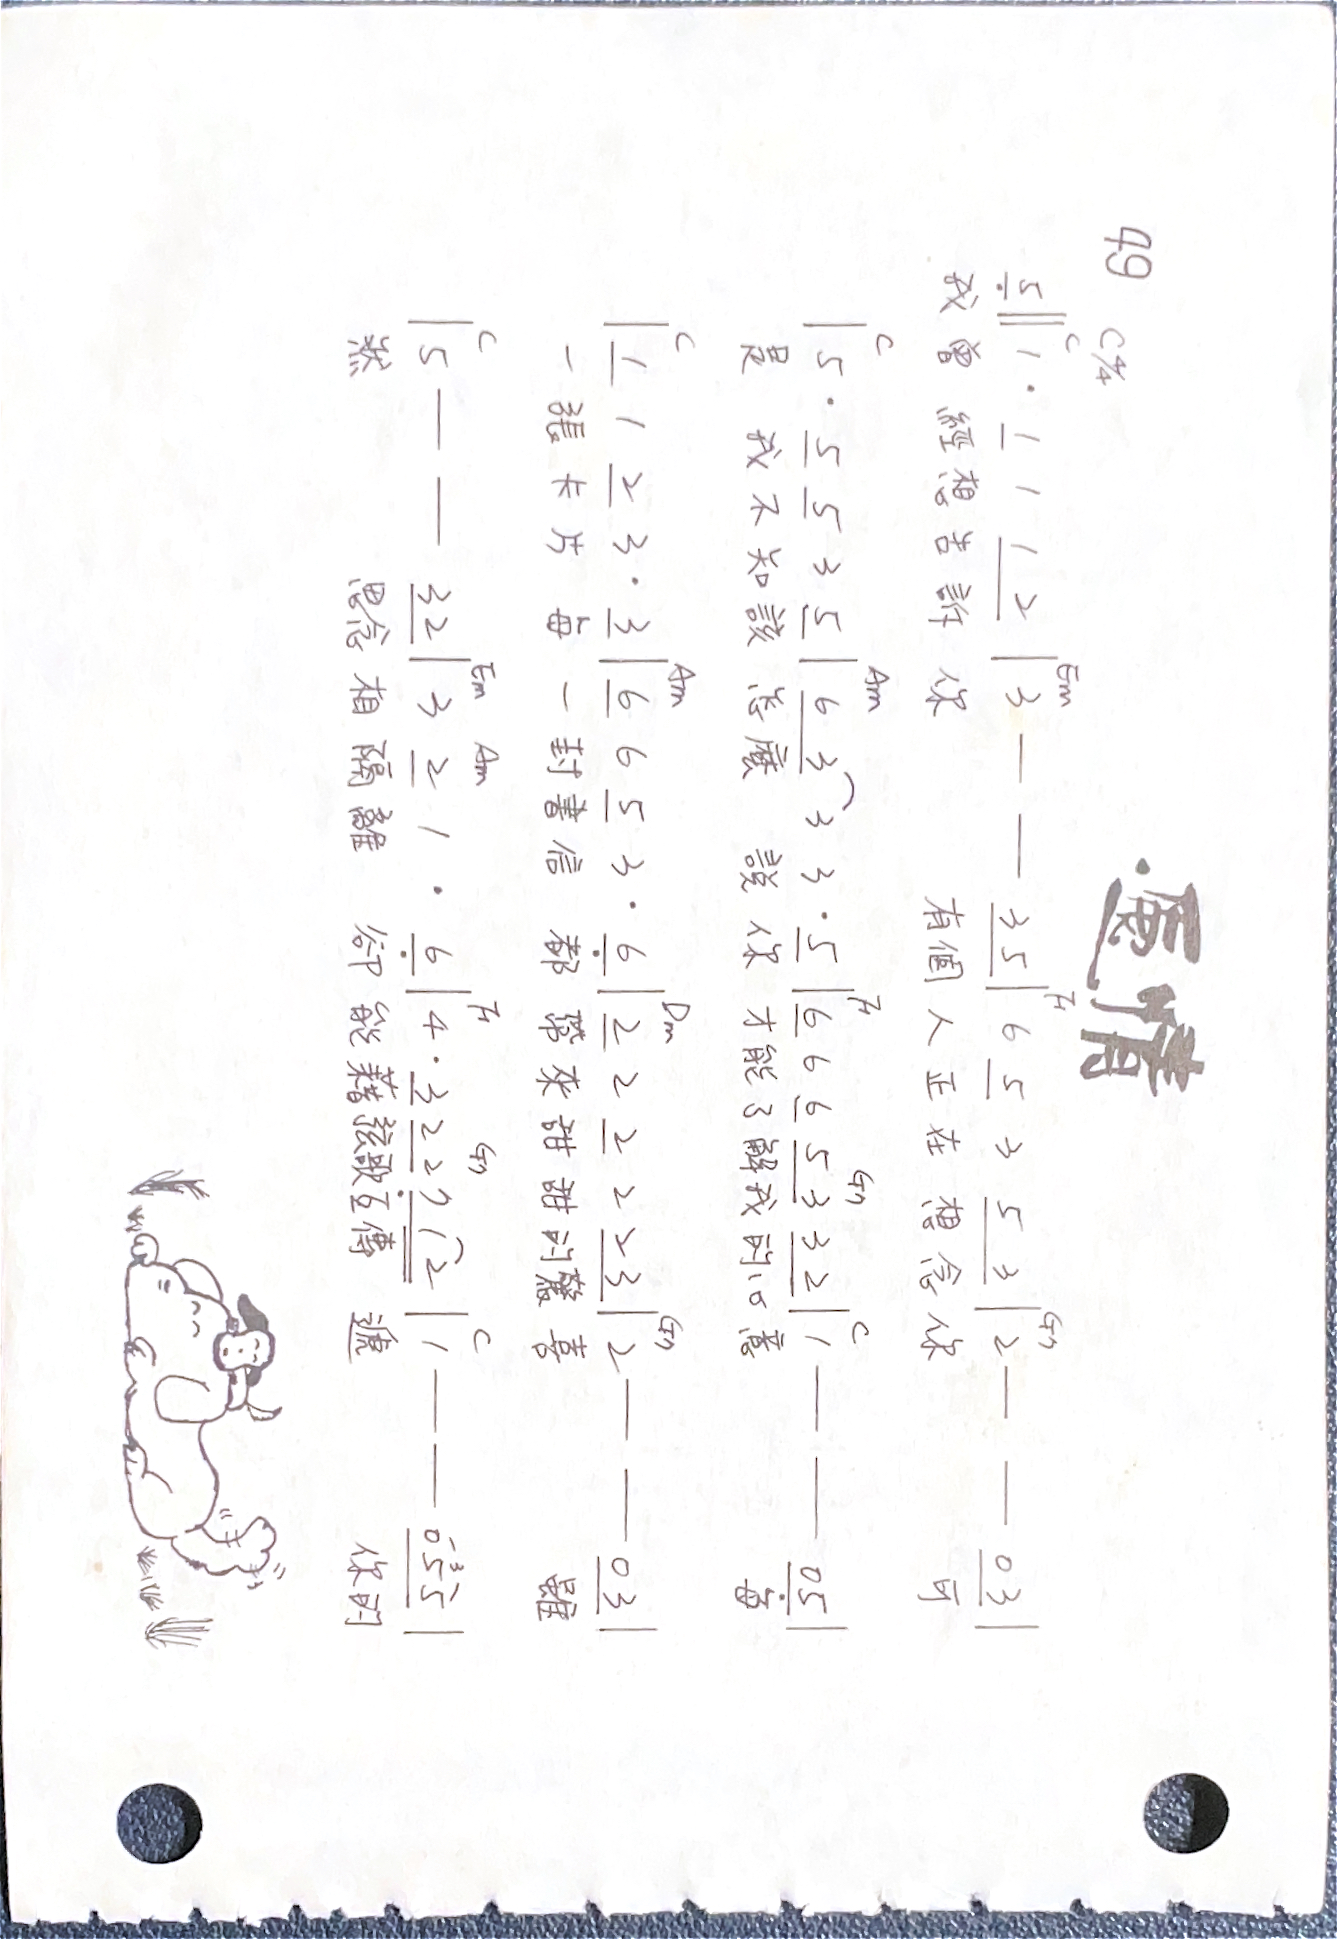 遞情
49 C 4/4
C Em F G7
5 || 1 · 1 1 1 2 | 3 — — 3 5 | 6 5 3 5 3 | 2 — — 0 3 |
我曾 經想告訴 你 有個人正在想念你 可
C Am F G7 C
| 5 · 5 5 3 5 | 6 3 3 3 · 5 | 6 6 6 5 3 3 2 | 1 — — 0 5 |
是 我不知該 怎麼 說 你 才能了解我的心意 每
C Am Dm G7
| 1 1 2 3 · 3 | 6 6 5 3 · 6 | 2 2 2 2 2 3 | 2 — — 0 3 |
一張卡片 每一封書信 都 帶來甜甜的驚喜 雖
C Em Am F G7 C
| 5 — — 3 2 | 3 2 1 · 6 | 4 · 3 2 2 7 1 2 | 1 — — 0 5 5 |
3
然 思念相隔離 卻能藉弦歌互傳 遞 你的